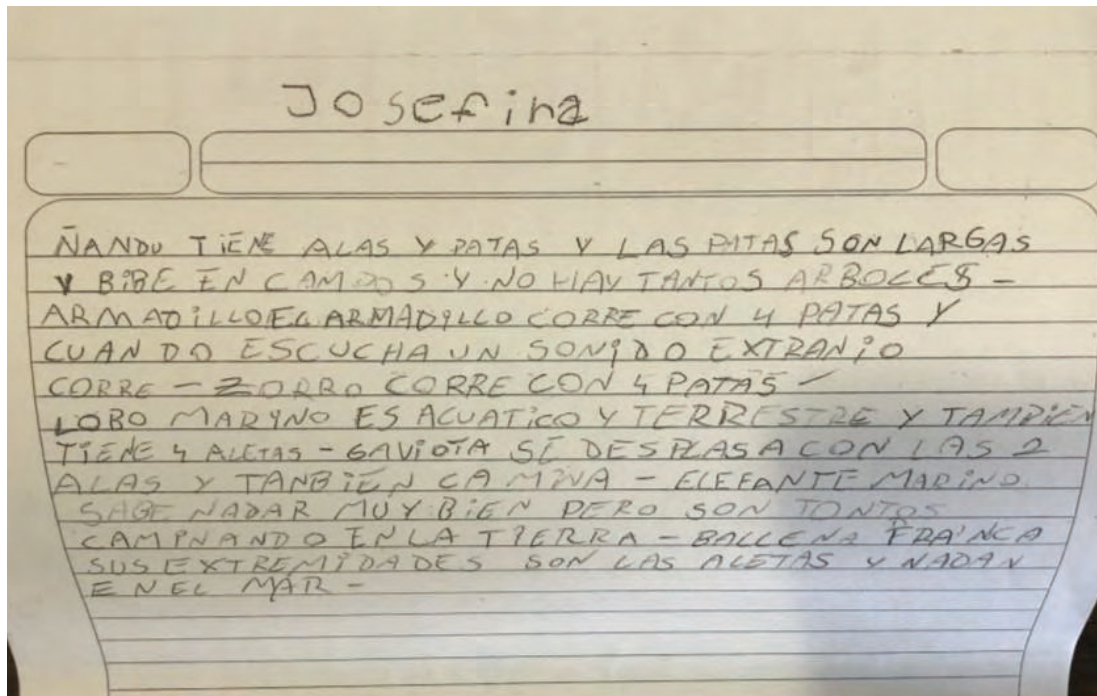 Josefina
ÑANDU TIENE ALAS Y PATAS Y LAS PATAS SON LARGAS
Y BIBE EN CAMPOS Y NO HAY TANTOS ARBOLES -
ARMADILLO EL ARMADYLLO CORRE CON 4 PATAS Y
CUANDO ESCUCHA UN SONIDO EXTRANIO
CORRE - ZORRO CORRE CON 4 PATAS -
LOBO MARYNO ES ACUATICO Y TERRESTRE Y TAMBIEN
TIENE 4 ALETAS - GAVIOTA SE DESPLASA CON LAS 2
ALAS Y TANBIEN CAMINA - ELEFANTE MARINO
SABE NADAR MUY BIEN PERO SON TONTOS
CAMINANDO EN LA TIERRA - BALLENA FRANCA
SUS EXTREMIDADES SON LAS ALETAS Y NADAN
EN EL MAR -